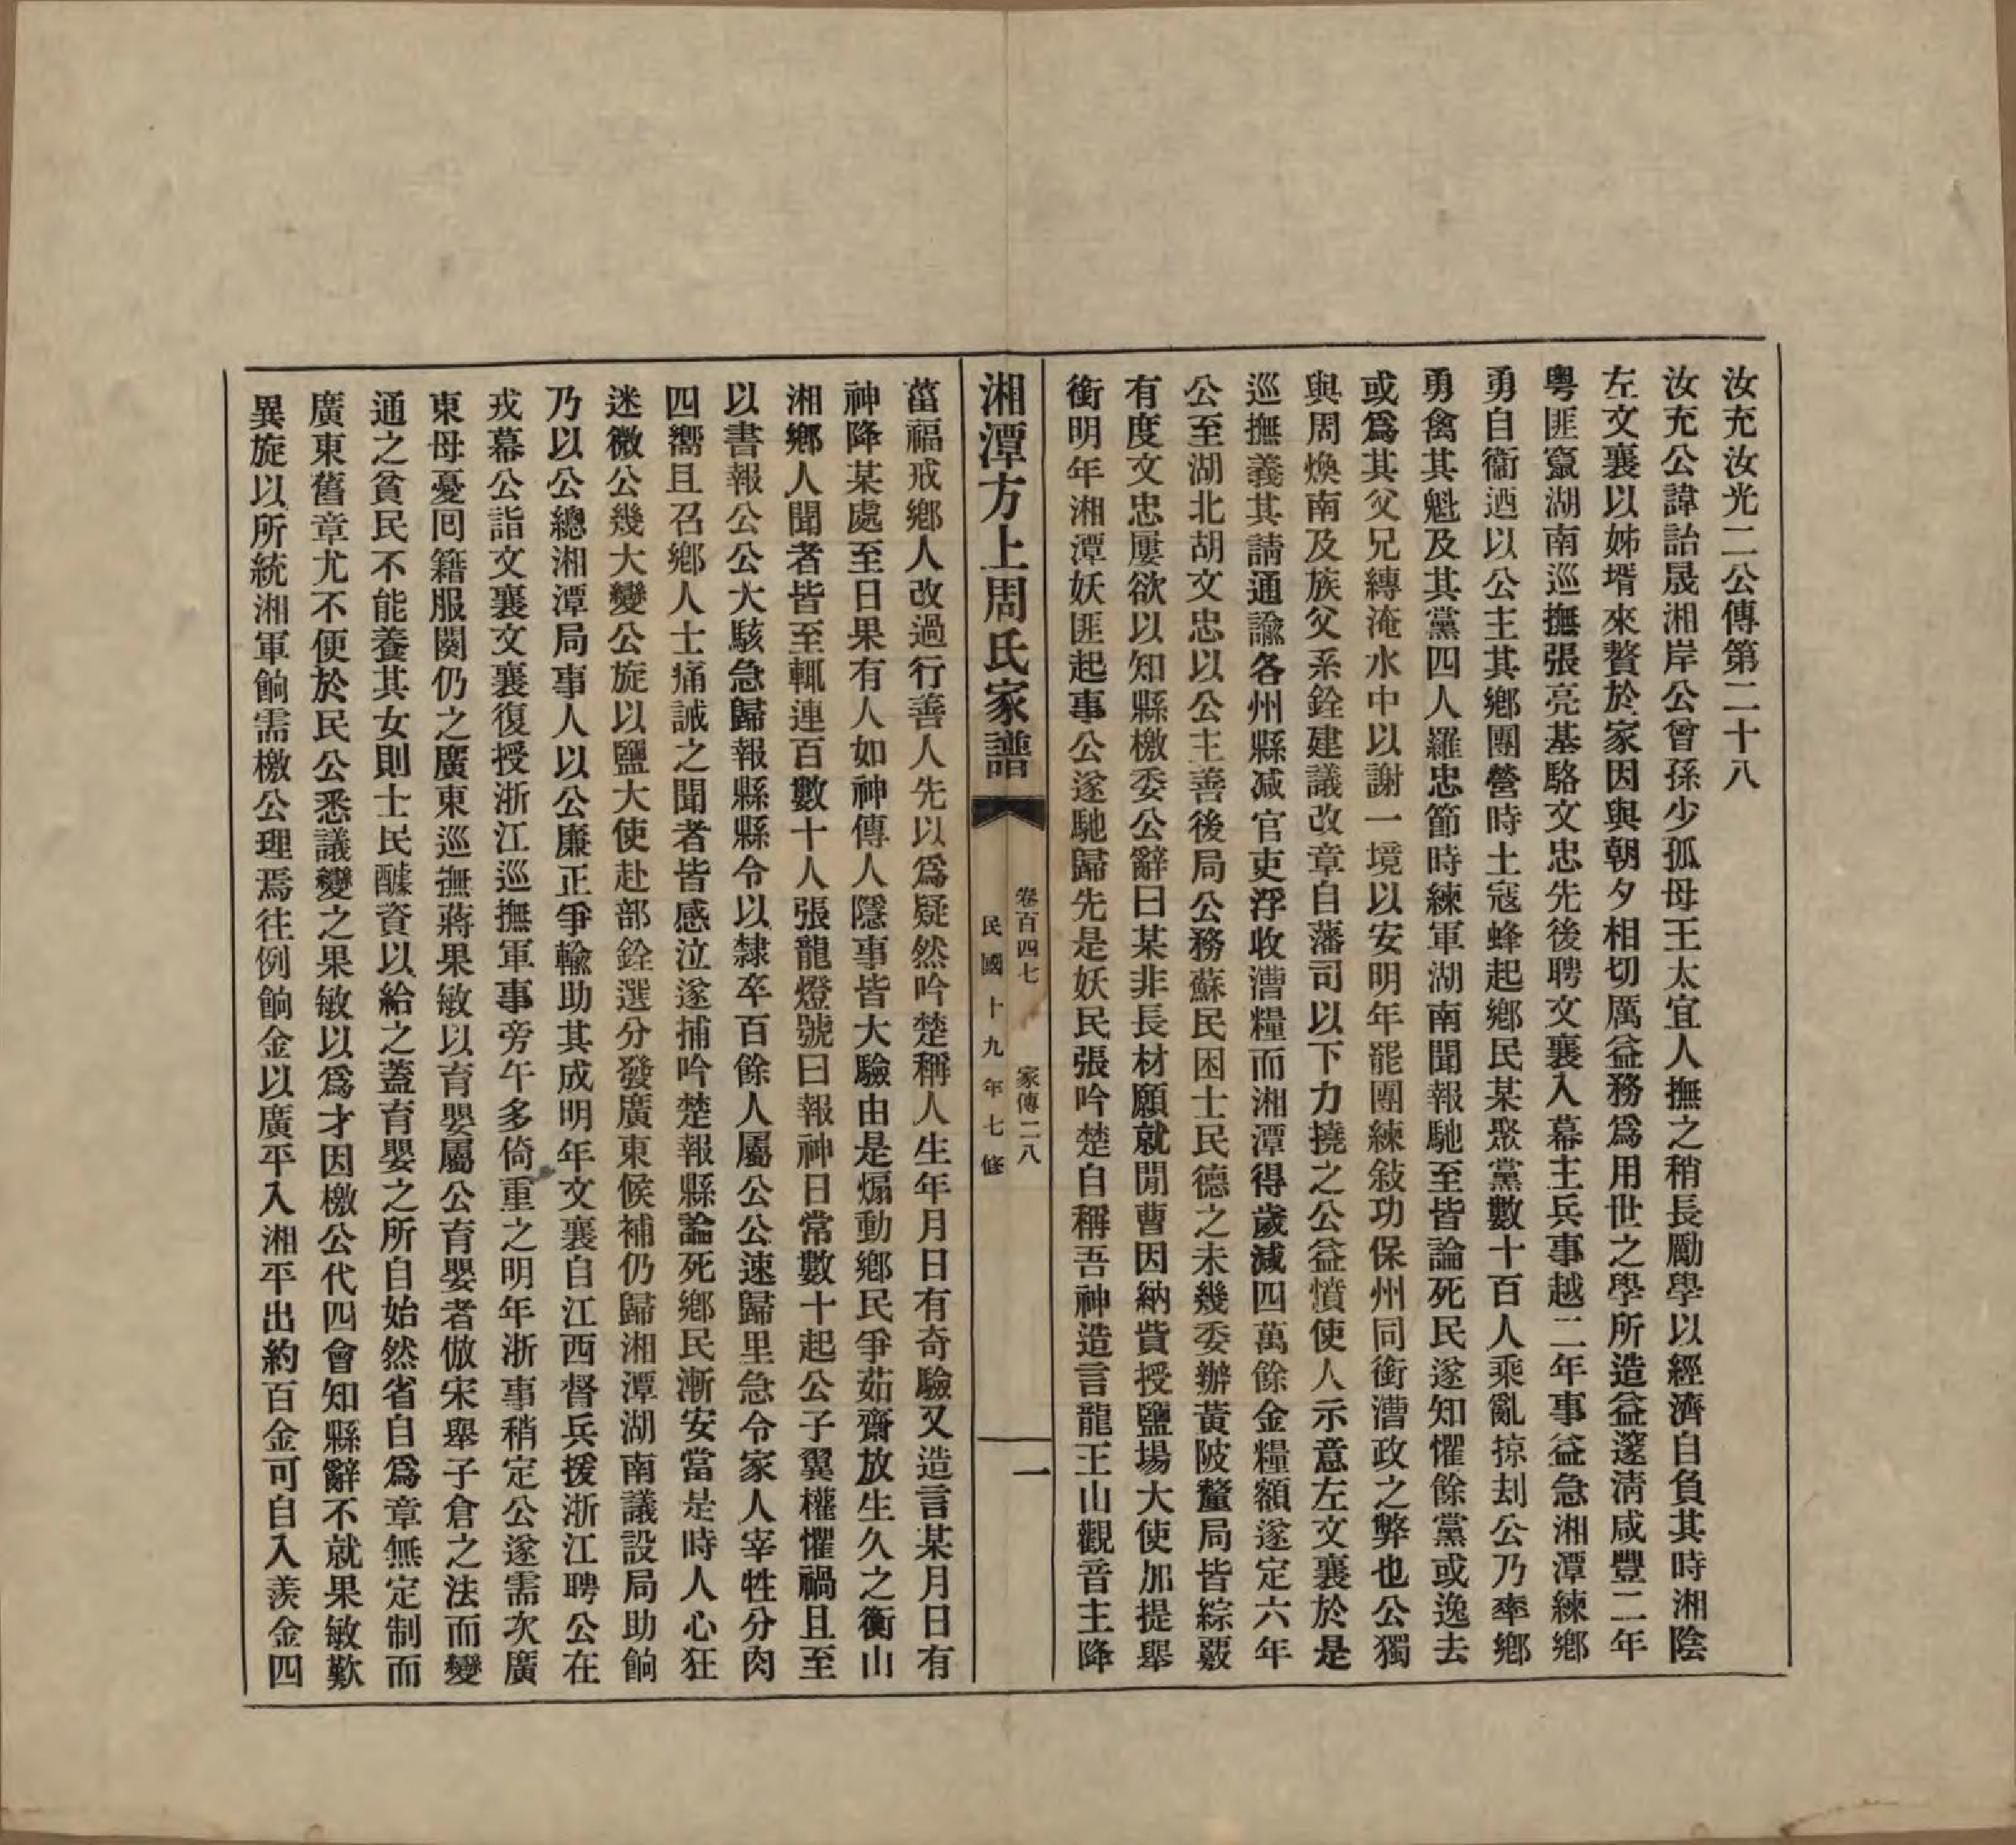 汝充汝光二公傳第二十八
汝充公諱詒晟湘岸公曾孫少孤母王太宜人撫之稍長勵學以經濟自負其時湘陰
左文襄以姊壻來贅於家因與朝夕相切厲益務爲用世之學所造益邃淸咸豐二年
粵匪竄湖南巡撫張亮基駱文忠先後聘文襄入幕主兵事越二年事益急湘潭練鄉
勇自衞迺以公主其鄉團營時土寇蜂起鄉民某聚黨數十百人乘亂掠刦公乃率鄉
勇禽其魁及其黨四人羅忠節時練軍湖南聞報馳至皆論死民遂知懼餘黨或逸去
或爲其父兄縛淹水中以謝一境以安明年罷團練敍功保州同銜漕政之弊也公獨
與周煥南及族父系銓建議改章自藩司以下力撓之公益憤使人示意左文襄於是
巡撫義其請通諭各州縣減官吏浮收漕糧而湘潭得歲減四萬餘金糧額遂定六年
公至湖北胡文忠以公主善後局公務蘇民困士民德之未幾委辦黃陂釐局皆綜覈
有度文忠屢欲以知縣檄委公辭曰某非長材願就閒曹因納貲授鹽場大使加提舉
銜明年湘潭妖匪起事公遂馳歸先是妖民張吟楚自稱吾神造言龍王山觀音主降
湘潭方上周氏家譜
卷百四七　家傳二八
民國十九年七修
一
菑福戒鄉人改過行善人先以爲疑然吟楚稱人生年月日有奇驗又造言某月日有
神降某處至日果有人如神傳人隱事皆大驗由是煽動鄉民爭茹齋放生久之衡山
湘鄉人聞者皆至輒連百數十人張龍燈號曰報神日常數十起公子翼權懼禍且至
以書報公公大駭急歸報縣縣令以隸卒百餘人屬公公速歸里急令家人宰牲分肉
四嚮且召鄉人士痛誡之聞者皆感泣遂捕吟楚報縣論死鄉民漸安當是時人心狂
迷微公幾大變公旋以鹽大使赴部銓選分發廣東候補仍歸湘潭湖南議設局助餉
乃以公總湘潭局事人以公廉正爭輸助其成明年文襄自江西督兵援浙江聘公在
戎幕公詣文襄文襄復授浙江巡撫軍事旁午多倚重之明年浙事稍定公遂需次廣
東母憂囘籍服闋仍之廣東巡撫蔣果敏以育嬰屬公育嬰者倣宋舉子倉之法而變
通之貧民不能養其女則士民醵資以給之蓋育嬰之所自始然省自爲章無定制而
廣東舊章尤不便於民公悉議變之果敏以爲才因檄公代四會知縣辭不就果敏歎
異旋以所統湘軍餉需檄公理焉往例餉金以廣平入湘平出約百金可自入羨金四